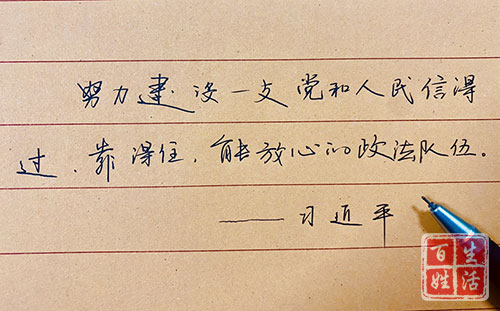 努力建设一支党和人民信得
过、靠得住、能放心的政法队伍。
——习近平
百姓生活